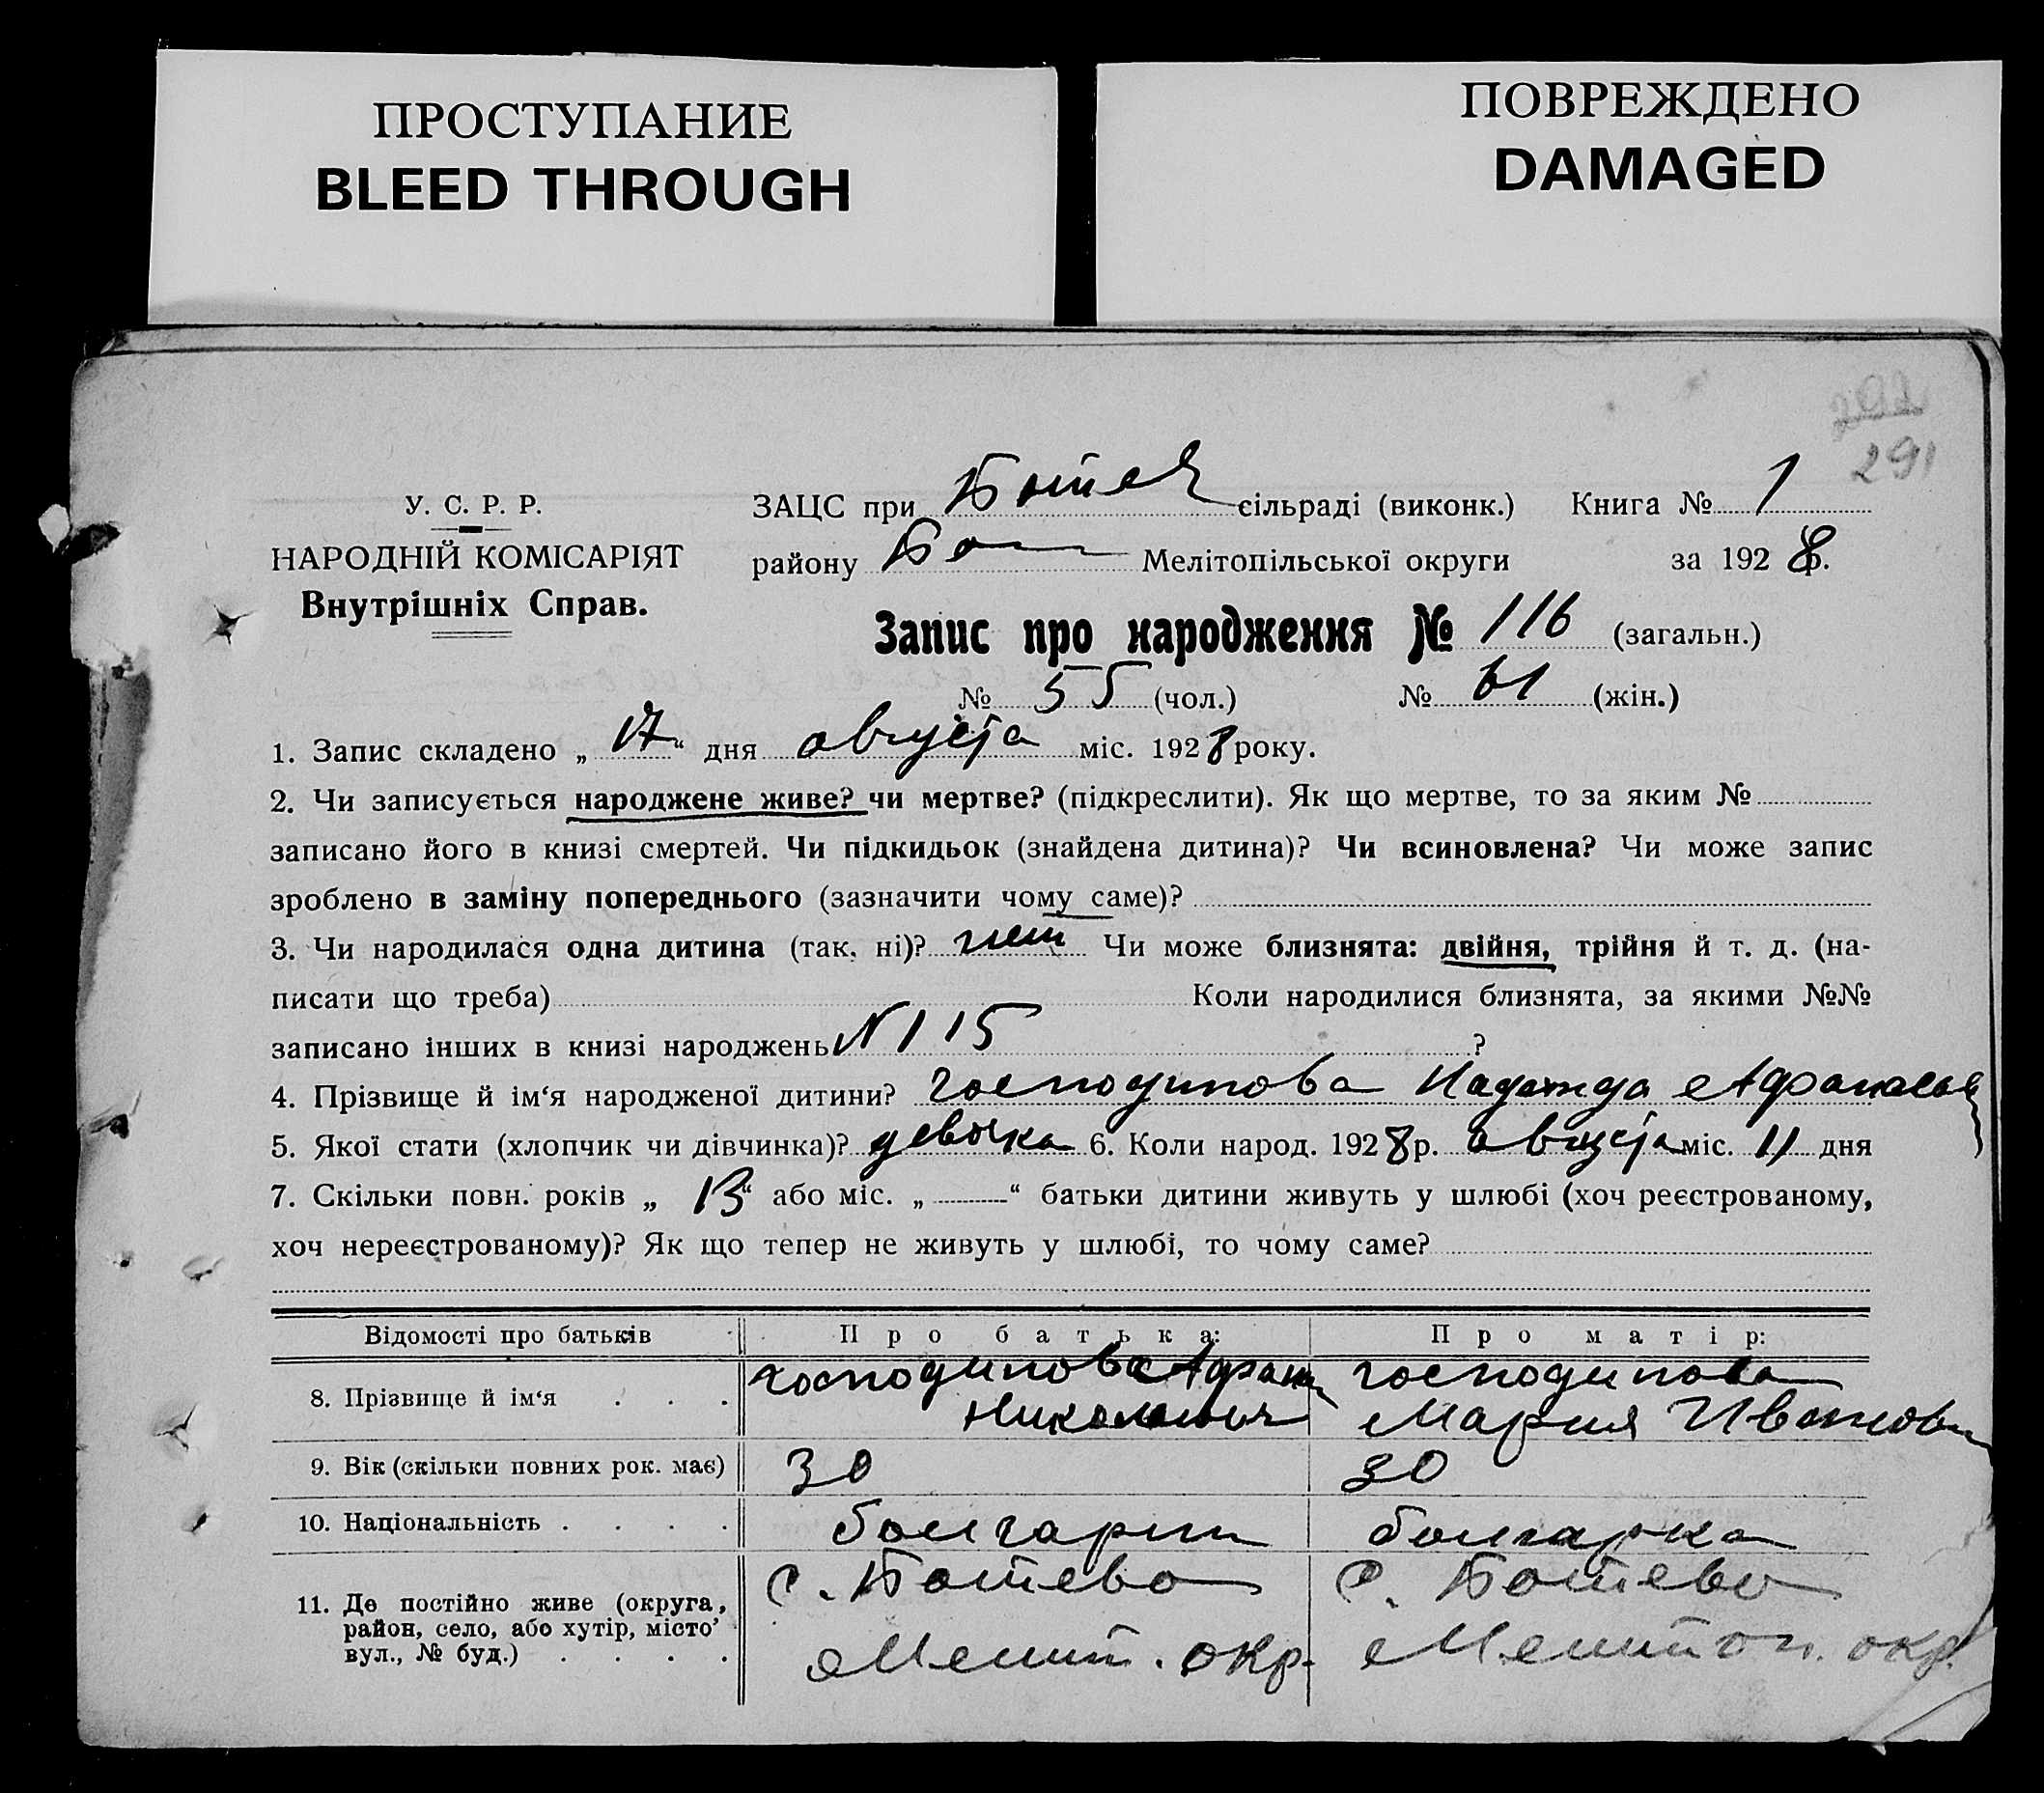 ПРОСТУПАНИЕ
BLEED THROUGH
ПОВРЕЖДЕНО
DAMAGED
291
У. С. Р. Р.
НАРОДНІЙ КОМІСАРІЯТ
Внутрішніх Справ.
ЗАЦС при Ботев сільраді (виконк.) Книга № 1
району Бот Мелітопільської округи за 1928 р.
Запис про народження № 116 (загальн.)
№ 55 (чол.) № 61 (жін.)
1. Запис складено „17“ дня августа міс. 1928 року.
2. Чи записується народжене живе? чи мертве? (підкреслити). Як що мертве, то за яким №
записано його в книзі смертей. Чи підкидьок (знайдена дитина)? Чи всиновлена? Чи може запис
зроблено в заміну попереднього (зазначити чому саме)?
3. Чи народилася одна дитина (так, ні)? нет Чи може близнята: двійня, трійня й т. д. (на-
писати що треба) Коли народилися близнята, за якими №№
записано інших в книзі народжень N 115 ?
4. Прізвище й ім‘я народженої дитини? Господинова Надежда Афанасов
5. Якої стати (хлопчик чи дівчинка)? девочка 6. Коли народ. 1928 р. августа міс. 11 дня
7. Скільки повн. років „13“ або міс. „ “ батьки дитини живуть у шлюбі (хоч реєстрованому,
хоч нереєстрованому)? Як що тепер не живуть у шлюбі, то чому саме?
Відомості про батьків Про батька: Про матір:
8. Прізвище й ім‘я . . . Господинов Афан Господинова
Николаевич Мария Ивановн
9. Вік (скільки повних рок. має) 30 30
10. Національність . . . . болгарин болгарка
11. Де постійно живе (округа, с. Ботево с. Ботево
район, село, або хутір, місто’
вул., № буд.) . . . . Мелит. окр. Мелитоп. окр.